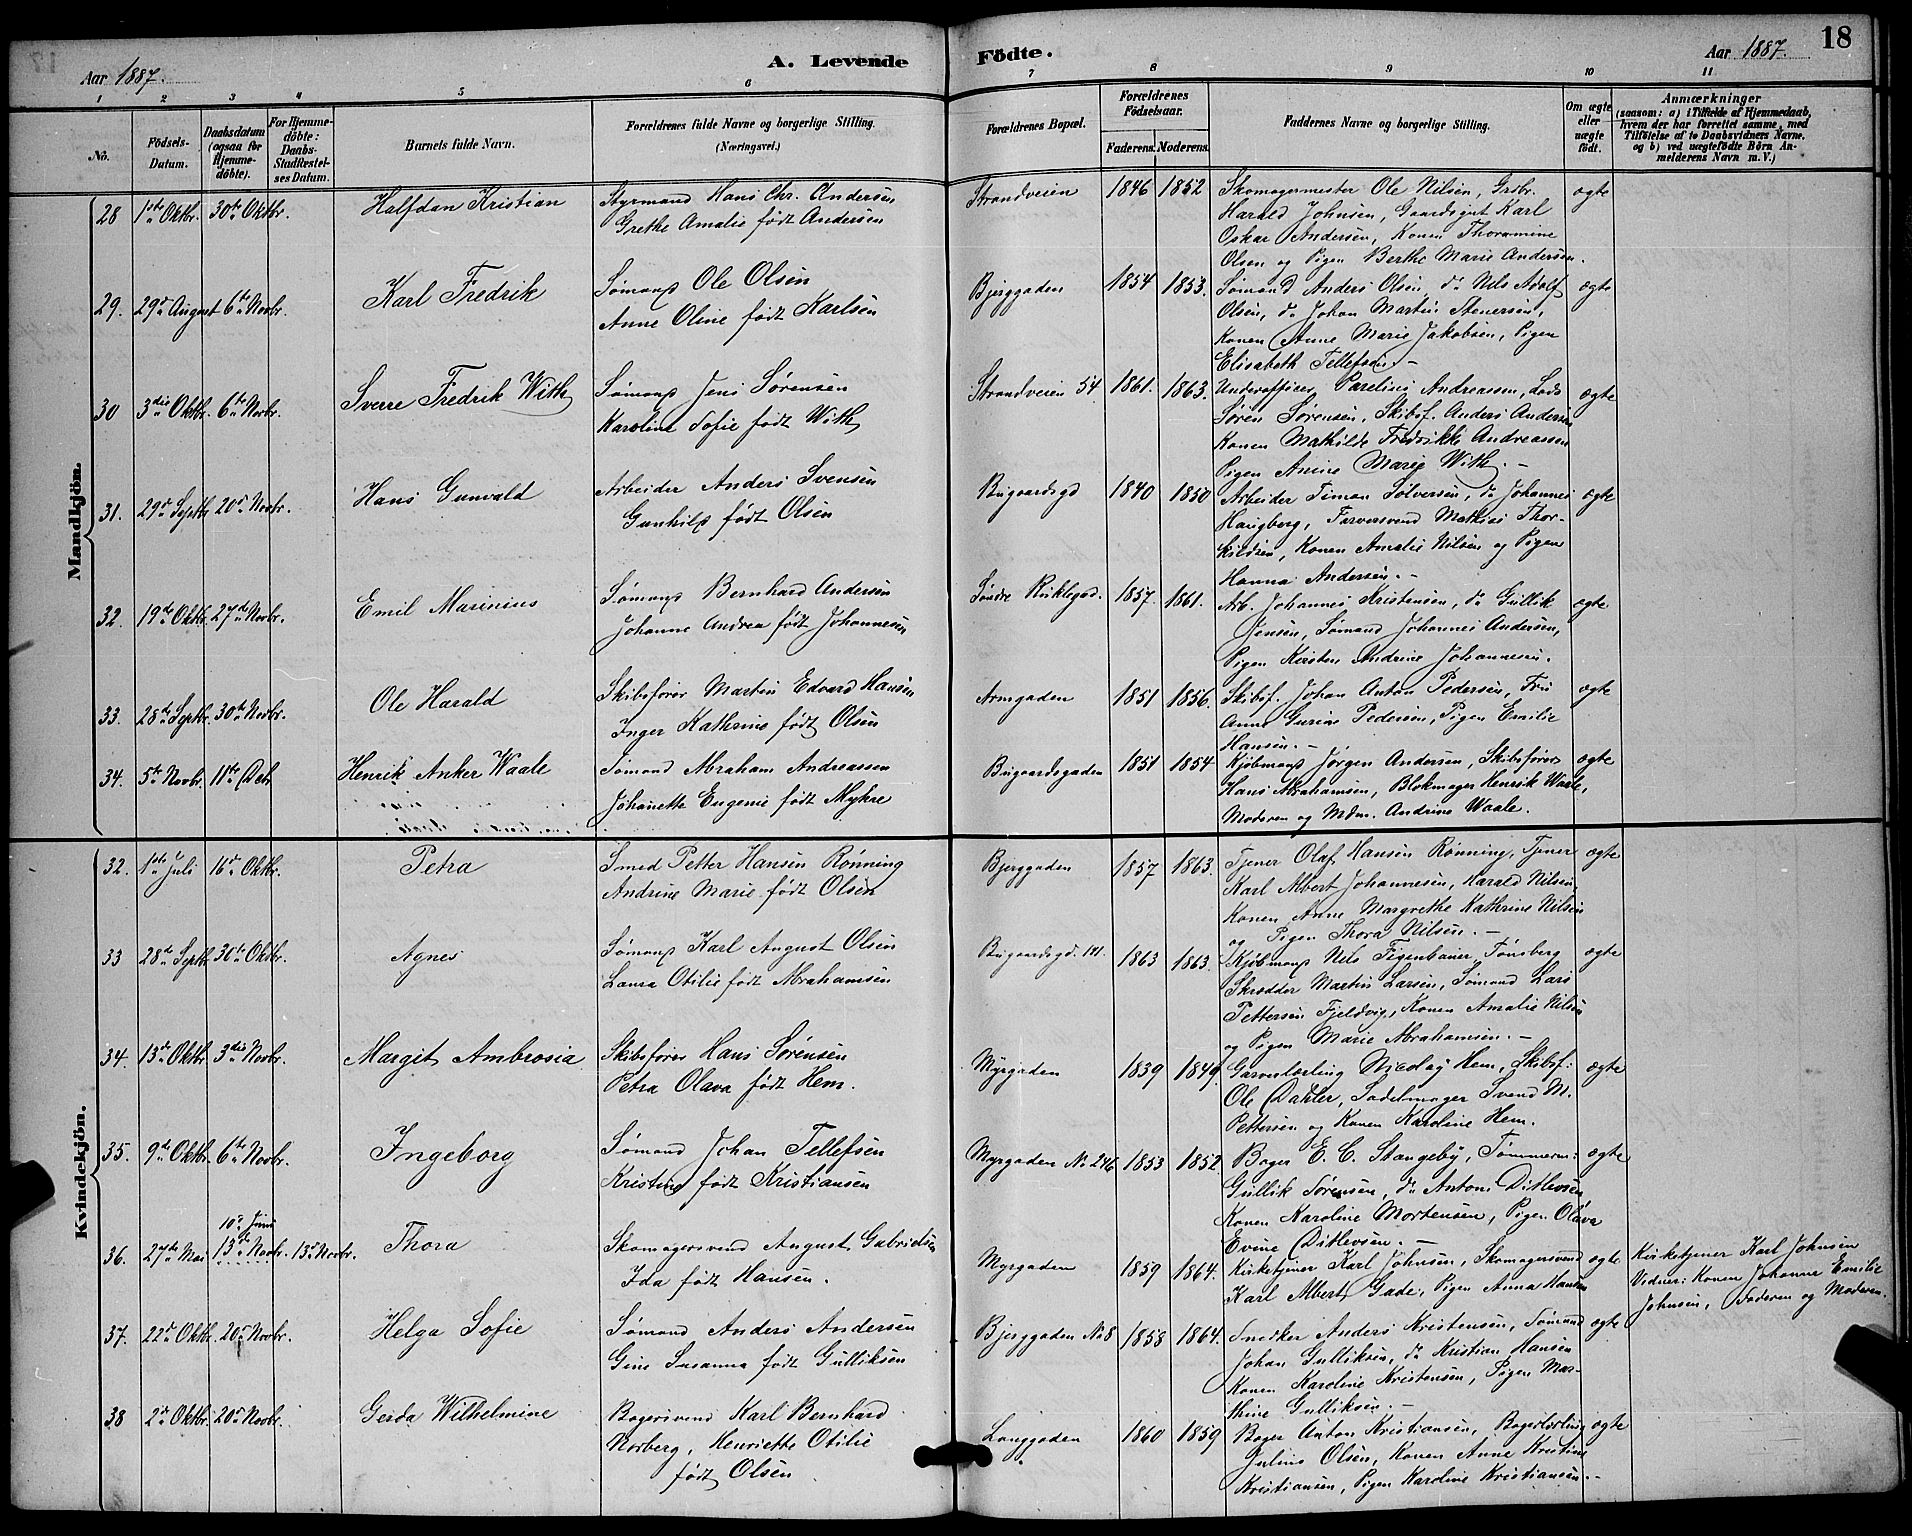 Aar 1887.
A. Levende
Födte.
Aar 1887.
18
1 2 3 4 5 6 7 8 9 10 11
No.
Födsels-Datum.
Daabsdatum (ogsaa for Hjemme-döbte).
For Hjemme-döbte: Daabs-Stadfæstel-ses Datum.
Barnets fulde Navn.
Forældrenes fulde Navne og borgerlige Stilling. (Næringsvei.)
Forældrenes Bopæl.
Forældrenes Födselsaar.
Faderens. Moderens.
Faddernes Navne og borgerlige Stilling.
Om ægte eller uægte födt.
Anmærkninger
(saasom: a) i Tilfælde af Hjemmedaab,
hvem der har forrettet samme, med
Tilföielse af to Daabsvidners Navne,
og b) ved uægtefödte Börn An-
melderens Navn m. V.)
Mandkjön.
28 1ste Oktbr. 30te Oktbr. Halfdan Kristian
Styrmand Hans Chr. Andersen
Grethe Amalie født Andersen
Strandveien 1846 1852
Skomagermester Ole Nilsen, Grdbr.
Harald Johnsen, Gaardsgut Karl
Oskar Andersen, Konen Thoramine
Olsen og Pigen Berthe Marie Andersen.
ægte
29. 29de August 6te Novbr. Karl Fredrik
Sømand Ole Olsen
Anne Oline født Karlsen
Bjerggaden 1854 1853.
Sømand Anders Olsen, do Nils Adolf
Olsen, do Johan Martin Stenersen,
Konen Anne Marie Jakobsen, Pigen
Elisabeth Tellefsen. -
ægte
30 3die Oktbr. 6te Novbr. Sverre Fredrik With
Sømand Jens Sørensen
Karoline Sofie født With
Strandveien 54. 1861. 1863.
Underofficer Parelius Andreassen, Lods
Søren Sørensen, Skibsf. Anders Andersen
Konen Mathilde Fredrikke Andreassen
Pigen Anine Marie With. -
ægte
31. 29de Septbr 20de Novbr. Hans Gunvald
Arbeider Anders Svensen
Gunhild født Olsen
Bugaardsgd 1840 1850
Arbeider Timan Sølversen, do Johannes
Haugberg, Farversvend Mathias Thor-
kildsen, Konen Amalie Nilsen og Pigen
Hanna Andersen. -
ægte
32. 19de Oktbr. 27de Novbr. Emil Marinius
Sømand Bernhard Andersen
Johanne Andrea født Johannesen
Søndre 1857. 1861.
Arb. Johannes Kristensen, do Gullik
Jensen, Sømand Johannes Andersen,
Pigen Kirsten Andrine Johannesen.
ægte
33. 28de Septbr. 30te Novbr. Ole Harald
Skibsfører Martin Edvard Hansen
Inger Kathrine født Olsen
Armgaden 1851 1856.
Skibsf. Johan Anton Pedersen, Fru
Anne Gurine Pedersen, Pigen Emilie
Hansen. -
ægte
34. 5te Novbr. 11te Debr Henrik Anker Waale
Sømand Abraham Andreassen
Johanette Eugenie født Myhre
Bugaardsgaden 1851 1854
Kjøbmand Jørgen Andersen, Skibsfører
Hans Abrahamsen, Blokmager Henrik Waale,
Moderen og Mdm. Andrine Waale.
ægte
Kvindekjön.
32. 1ste Juli 16de Oktbr. Petra
Smed Petter Hansen Rønning
Andrine Marie født Olsen
Bjerggaden 1857 1863.
Tjener Olaf Hansen Rønning, Tjener
Karl Albert Johannesen, Harald Nilsen,
Konen Anne Margrethe Kathrine Nilsen
og Pigen Thora Nilsen. -
ægte
33 28de Septbr 30te Oktbr. Agnes
Sømand Karl August Olsen
Laura Otilie født Abrahamsen
Bugaardsgd. 141. 1863 1863.
Kjøbmand Nils Figenbauer, Tønsberg
Skrædder Martin Larsen, Sømand Lars
Pettersen Fjeldvig, Konen Amalie Nilsen
og Pigen Marie Abrahamsen. -
ægte
34. 13de Oktbr. 3die Novbr. Margit Ambrosia
Skibsfører Hans Sørensen
Petra Olava født Hem.
Myrgaden 1839 1849.
Garverlærling Nicolay Hem, Skibsf:
Ole Dahler, Sadelmager Svend M.
Pettersen og Konen Karoline Hem.
ægte
35. 9de Oktbr. 6te Novbr. Ingeborg
Sømand Johan Tellefsen
Kristine født Kristiansen
Myrgaden No 246 1853 1852.
Bager E. C. Stangeby, Tømmerm:
Gullik Sørensen, do Anton Ditlevsen
Konen Karoline Mortensen, Pigen Olava
Evine Ditlevsen. -
ægte
36. 27de Mai 10de Juni 13de Novbr. 13de Novbr. Thora
Skomagersvend August Gabrielsen
Ida født Hansen.
Myrgaden 1859 1864.
Kirketjener Karl Johnsen, Skomagersvend
Karl Albert Gade, Pigen Anna Hansen
ægte
Kirketjener Karl Johnsen
Vidner: Konen Johanne Emilie
Johnsen, Faderen og Moderen.
37. 22de Oktbr. 20de Novbr. Helga Sofie
Sømand Anders Andersen
Gine Susanna født Gulliksen
Bjerggaden No 8 1858 1864.
Snedker Anders Kristensen, Sømand
Johan Gulliksen, do Kristian Hansen
Konen Karoline Kristensen, Pigen Mar-
thine Gulliksen. -
ægte
38 2de Oktbr. 20de Novbr. Gerda Wilhelmine
Bagersvend Karl Bernhard
Norberg, Henriette Otilie
født Olsen
Langgaden 1860 1859
Bager Anton Kristiansen, Bagerlærling
Julius Olsen, Konen Anne Kristine
Kristiansen, Pigen Karoline Kristiansen. -
ægte